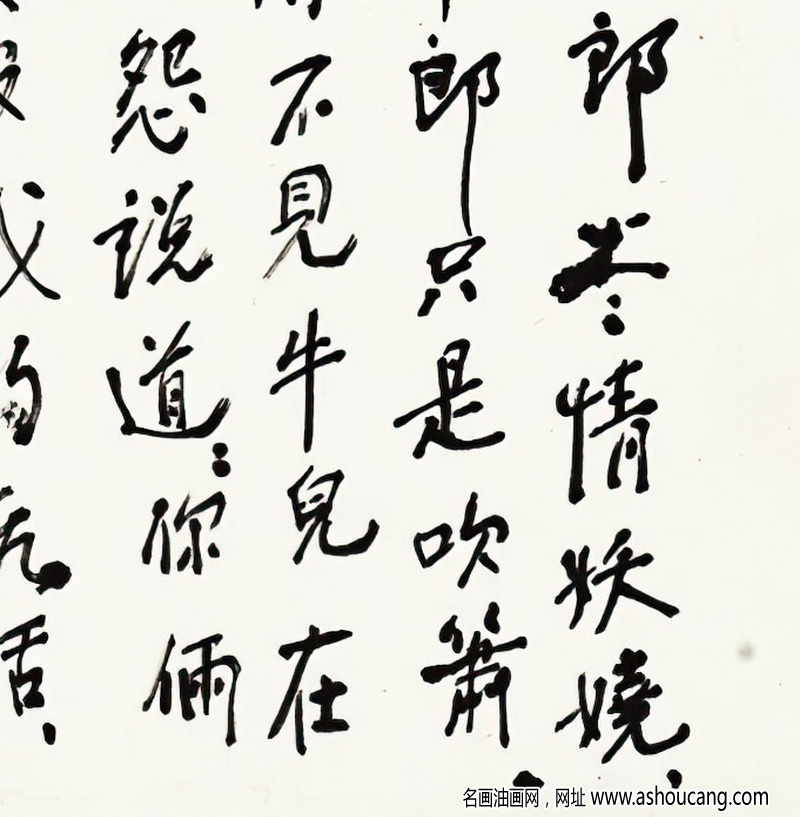 郎情妖嬈、
郎只是吹簫、
不見牛兒在
怨說道：你倆
名画油画网，网址 www.ashoucang.com